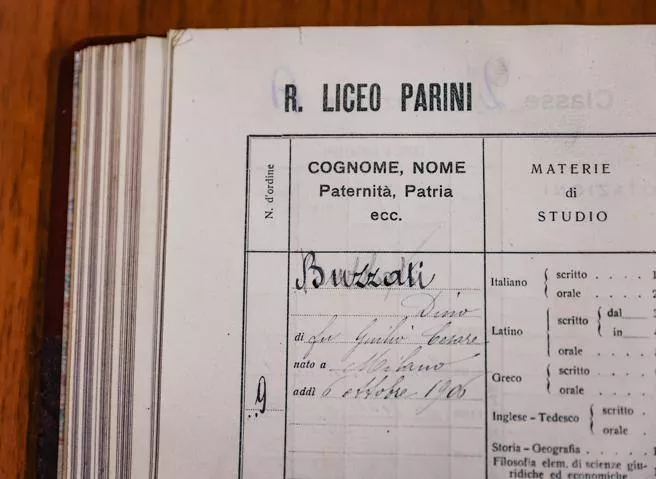 R. LICEO PARINI
N. d'ordine
COGNOME, NOME
Paternità, Patria
ecc.
MATERIE
di
STUDIO
9
Buzzati
Dino
di fu Giulio Cesare
nato a Milano
addì 6 ottobre 1906
Italiano { scritto . . . . 1
orale . . . . . 2
Latino { scritto { dal 3
in 4
orale . . . . .
Greco { scritto . . . .
orale . . . . .
Inglese - Tedesco { scritto .
orale .
Storia - Geografia . . . . . 1
Filosofia elem. di scienze giu-
ridiche ed economiche